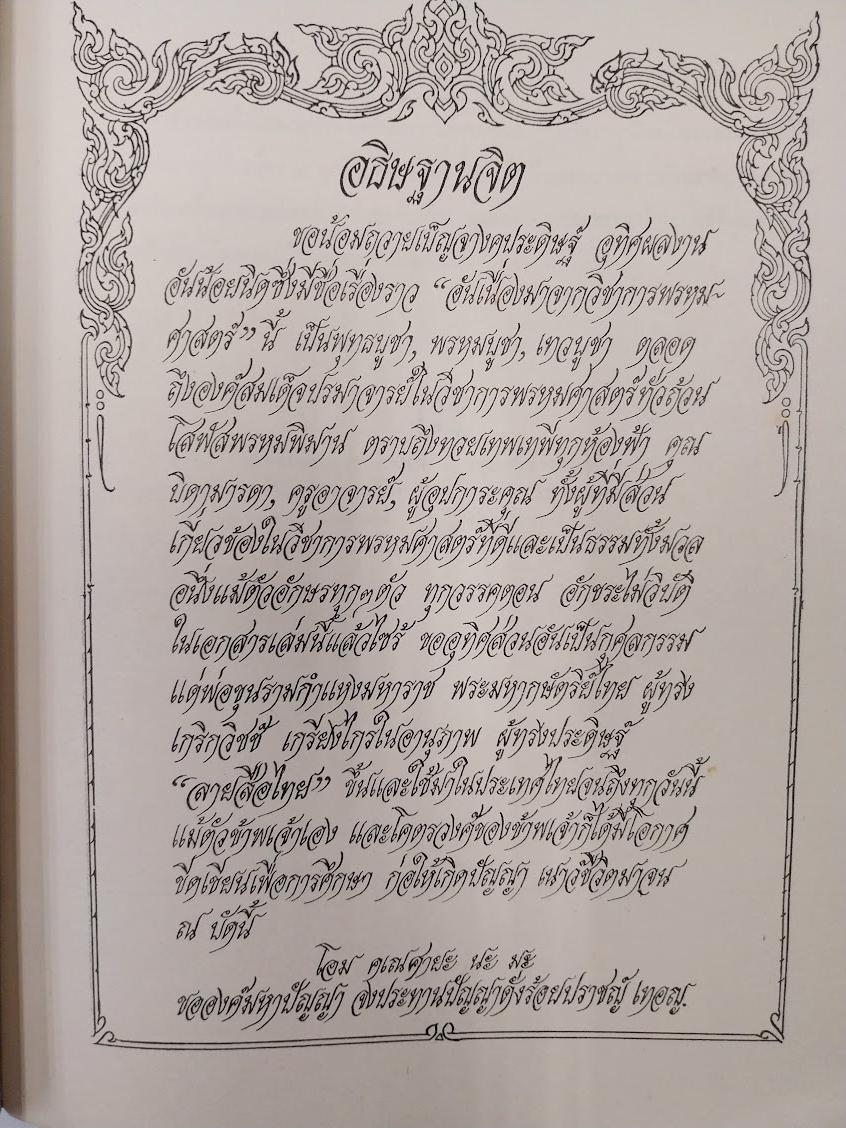 อธิษฐานจิต
ขอน้อมถวายเบ็ญจางคประดิษฐ์ อุทิศผลงาน
อันน้อยนิดซึ่งมีชื่อเรื่องราว “อันเนื่องมาจากวิชาการพรหม-
ศาสตร์” นี้ เป็นพุทธบูชา, พรหมบูชา, เทวบูชา ตลอด
ถึงองค์สมเด็จปรมาจารย์ในวิชาการพรหมศาสตร์ทั่วถ้วน
โสฬสพรหมพิมาน ตราบถึงทวยเทพเทพีทุกห้องฟ้า คุณ
บิดามารดา, ครูอาจารย์, ผู้อุปการะคุณ ทั้งผู้ที่มีส่วน
เกี่ยวข้องในวิชาการพรหมศาสตร์ที่ดีและเป็นธรรมทั้งมวล
อนึ่งแม้ตัวอักษรทุกๆตัว ทุกวรรคตอน อักขระไม่วิบัติ
ในเอกสารเล่มนี้แล้วไซร้ ขออุทิศส่วนอันเป็นกุศลกรรม
แด่พ่อขุนรามกำแหงมหาราช พระมหากษัตริย์ไทย ผู้ทรง
เกริกวิชช์ เกรียงไกรในอานุภาพ ผู้ทรงประดิษฐ์
“ลายสือไทย” ขึ้นและใช้มาในประเทศไทยจนถึงทุกวันนี้
แม้ตัวข้าพเจ้าเอง และโคตรวงศ์ของข้าพเจ้าก็ได้มีโอกาศ
ขีดเขียนเพื่อการศึกษา ก่อให้เกิดปัญญา เนาว์ชีวิตมาจน
ณ บัดนี้
โอม คเณศายะ นะ มะ
ขอองค์มหาปัญญา จงประทานปัญญาดั่งร้อยปราชญ์ เทอญ.